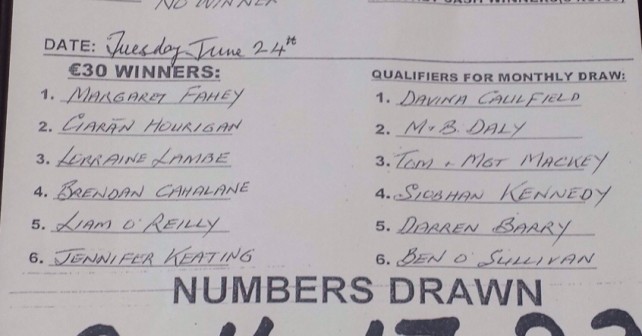 NO WINNER
DATE: Tuesday June 24th
€30 WINNERS:
1. MARGARET FAHEY
2. CIARÁN HOURIGAN
3. LORRAINE LAMBE
4. BRENDAN CAHALANE
5. LIAM O'REILLY
6. JENNIFER KEATING
QUALIFIERS FOR MONTHLY DRAW:
1. DAVINA CAULFIELD
2. M+B. DALY
3. TOM + MGT MACKEY
4. SIOBHAN KENNEDY
5. DARREN BARRY
6. BEN O'SULLIVAN
NUMBERS DRAWN